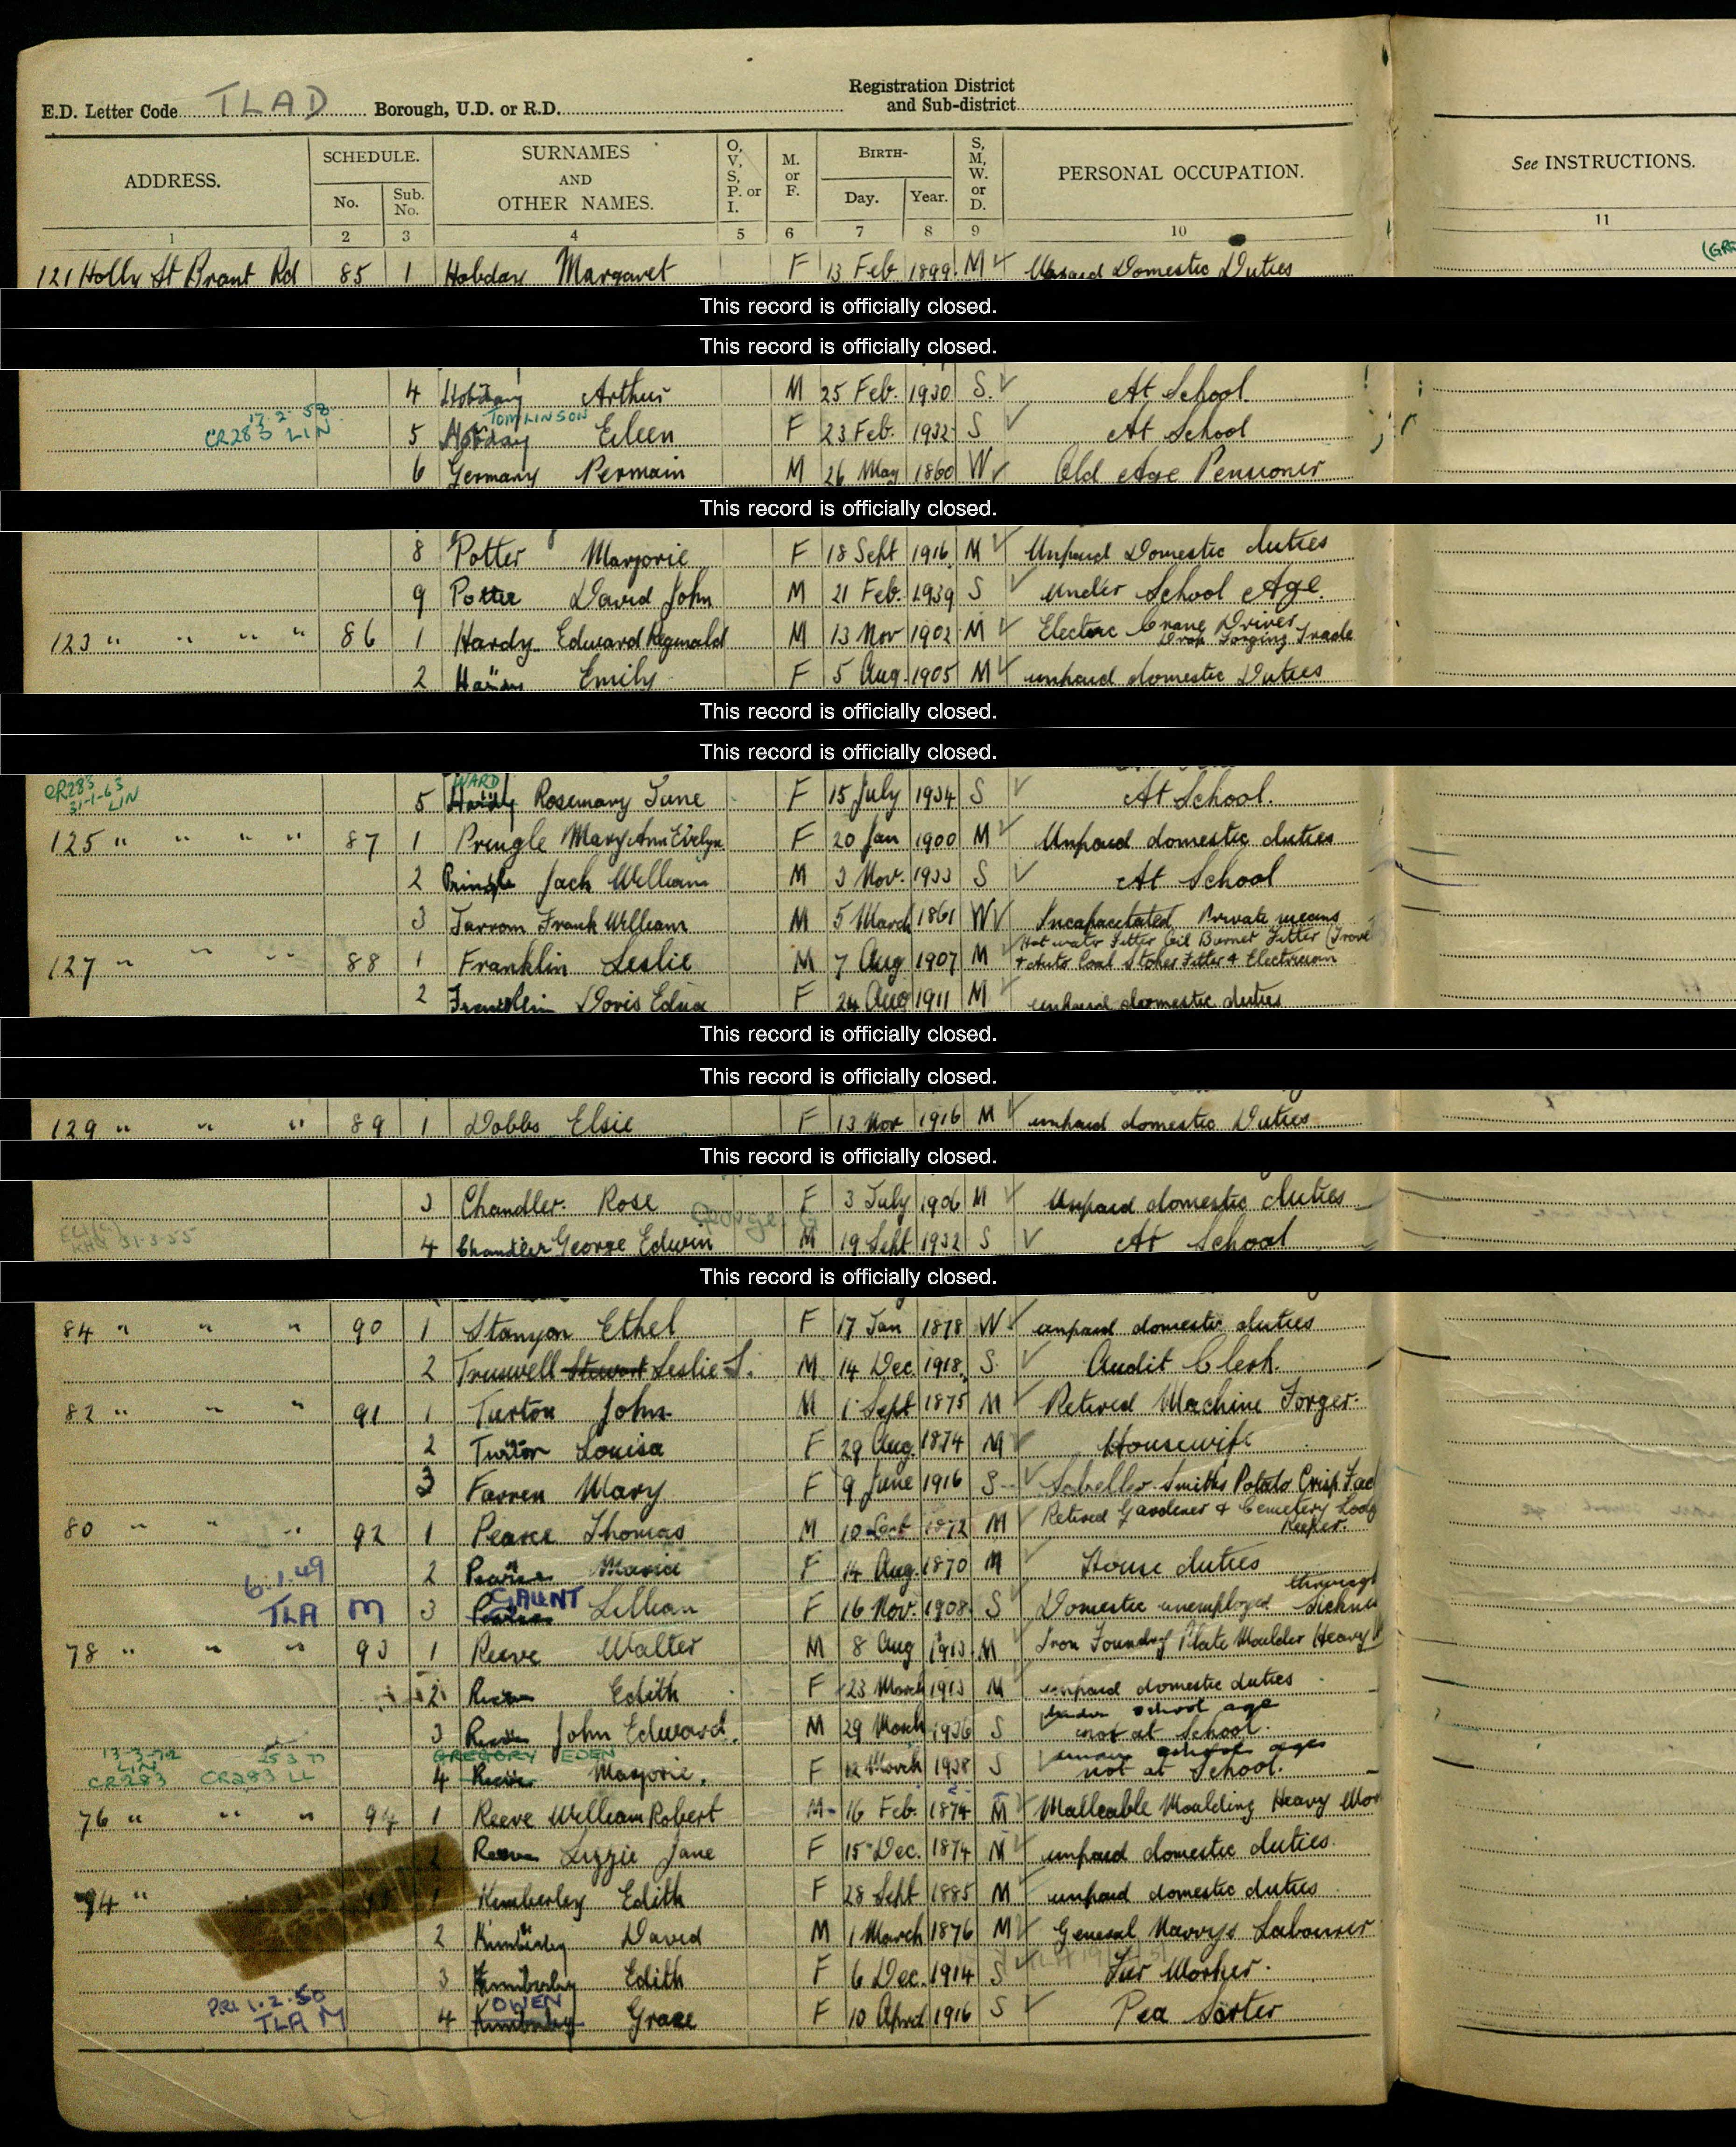 E.D. Letter Code TLAD Borough, U.D. or R.D. Registration District and Sub-district
ADDRESS. SCHEDULE. No. Sub. No. SURNAMES AND OTHER NAMES. O, V, S, P. or I. M. or F. BIRTH- Day. Year. S, M, W. or D. PERSONAL OCCUPATION. See INSTRUCTIONS.
1 2 3 4 5 6 7 8 9 10 11
121 Holly St Brant Rd 85 1 Hobday Margaret F 13 Feb 1899 M Unpaid Domestic Duties
This record is officially closed.
This record is officially closed.
4 Hobday Arthur M 25 Feb. 1930 S. At School
17.2.58 TOMLINSON
CR283 LIN 5 Hobday Eileen F 23 Feb. 1932 S At School
6 Germany Permain M 26 May 1860 W Old Age Pensioner
This record is officially closed.
8 Potter Marjorie F 18 Sept 1916 M Unpaid Domestic duties
9 Potter David John M 21 Feb. 1939 S Under School Age.
123 " " " " 86 1 Hardy Edward Reginald M 13 Nov 1902 M Electric Crane Driver Drop Forging Trade
2 Hardy Emily F 5 Aug. 1905 M unpaid domestic Duties
This record is officially closed.
This record is officially closed.
CR283 31-1-63 LIN WARD
5 Hardy Rosemary June F 15 July 1934 S At School.
125 " " " " 87 1 Pringle Mary Ann Evelyn F 20 Jan 1900 M Unpaid domestic duties
2 Pringle Jack William M 3 Nov. 1933 S At School
3 Jarrom Frank William M 5 March 1861 W Incapacitated Private means
127 " " " 88 1 Franklin Leslie M 7 Aug 1907 M Hot water Fitter Oil Burner Fitter
& Auto Coal Stoker Fitter & Electrician
2 Franklin Doris Edna F 24 Aug 1911 M unpaid domestic duties
This record is officially closed.
This record is officially closed.
129 " " " 89 1 Dobbs Elsie F 13 Nov 1916 M unpaid domestic Duties
This record is officially closed.
3 Chandler Rose F 3 July 1906 M Unpaid domestic duties
George G
31-3-55 4 Chandler George Edwin M 19 Sept 1932 S At School
This record is officially closed.
84 " " " 90 1 Stanyon Ethel F 17 Jan 1878 W unpaid domestic duties
2 Truswell Stewart Leslie S. M 14 Dec. 1918 S. Audit Clerk.
82 " " " 91 1 Turton John M 1 Sept 1875 M Retired Machine Forger.
2 Turton Louisa F 29 Aug. 1874 M Housewife
3 Farren Mary F 9 June 1916 S Labeller Smiths Potato Crisp Fac
80 " " " 92 1 Pearce Thomas M 10 Sept 1872 M Retired Gardener & Cemetery Lodg
Keeper.
2 Pearce Maria F 14 Aug. 1870 M House duties
6.1.49 GAUNT through
TLA M 3 Pearce Lillian F 16 Nov. 1908 S Domestic unemployed Sickne
78 " " " 93 1 Reeve Walter M 8 Aug 1913 M Iron Foundry Plate Moulder (Heavy
2 Reeve Edith F 23 March 1913 M unpaid domestic duties
under school age
3 Reeve John Edward. M 29 March 1936 S not at School.
13-3-72 LIN CR283 25 3 77 CR283 LL GREGORY EDEN under school age
4 Reeve Marjorie. F 12 March 1938 S not at School.
76 " " " 94 1 Reeve William Robert M 16 Feb. 1874 M Malleable Moulding Heavy Wor
2 Reeve Lizzie Jane F 15 Dec. 1874 M unpaid domestic duties.
74 " 1 Kimberley Edith F 28 Sept 1885 M unpaid domestic duties
2 Kimberley David M 1 March 1876 M General Navvys Labourer
3 Kimberley Edith F 6 Dec. 1914 S Fur Worker.
PRI 1.2.50 OWEN
TLA M 4 Kimberley Grace F 10 April 1916 S Pea Sorter